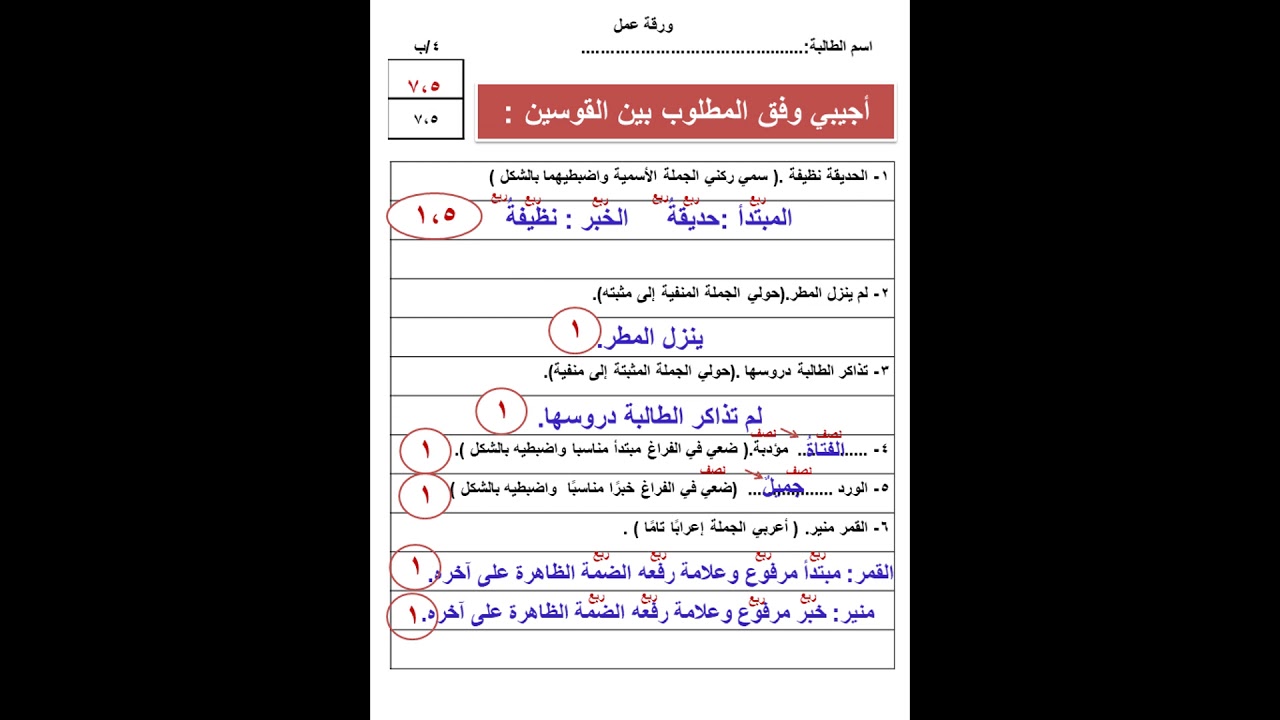 ورقة عمل
اسم الطالبة:............................................... ٤/ب
٧،٥
٧،٥
أجيبي وفق المطلوب بين القوسين :
١- الحديقة نظيفة .( سمي ركني الجملة الأسمية واضبطيهما بالشكل )
ربع ربع ربع ربع ربع ربع
المبتدأ :حديقةُ الخبر : نظيفةُ ١،٥
٢- لم ينزل المطر.(حولي الجملة المنفية إلى مثبته).
ينزل المطر. ١
٣- تذاكر الطالبة دروسها .(حولي الجملة المثبتة إلى منفية).
لم تذاكر الطالبة دروسها. ١
نصف نصف
٤- .....الفتاةُ.. مؤدبة.( ضعي في الفراغ مبتدأ مناسبا واضبطيه بالشكل ). ١
نصف نصف
٥- الورد ......جميلٌ... (ضعي في الفراغ خبرًا مناسبًا واضبطيه بالشكل ) ١
٦- القمر منير. ( أعربي الجملة إعرابًا تامًا ) .
ربع ربع ربع ربع
القمر: مبتدأ مرفوع وعلامة رفعه الضمة الظاهرة على آخره. ١
ربع ربع ربع ربع
منير: خبر مرفوع وعلامة رفعه الضمة الظاهرة على آخره. ١